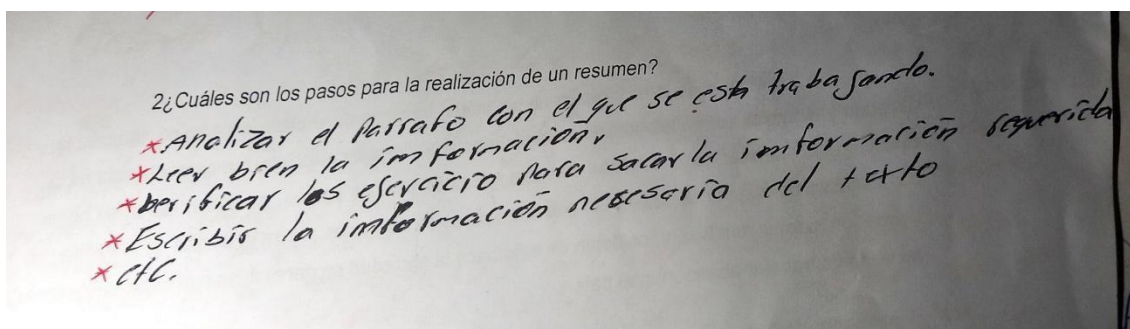 2¿Cuáles son los pasos para la realización de un resumen?
*Analizar el Parrafo con el que se esta trabajando.
*Leer bien la imformación,
*berificar los ejercicio para sacar la imformación requerida
*Escribir la imformación nesesaria del texto
*etc.